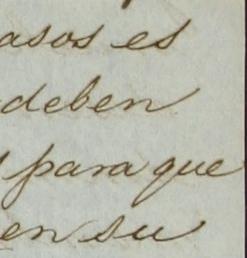 asos es
deben
para que
en su